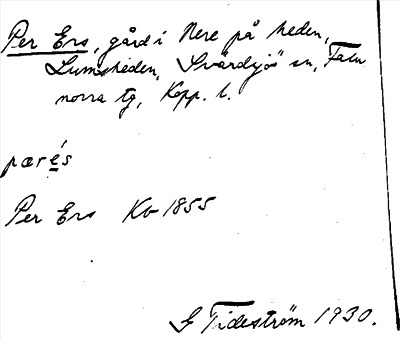 Per Ers, gård i Nere på heden,
Lumsheden, Svärdsjö sn, Falu
norra tg, Kopp. l.
pær é̱s
Per Ers Kb 1855
G Tideström 1930.